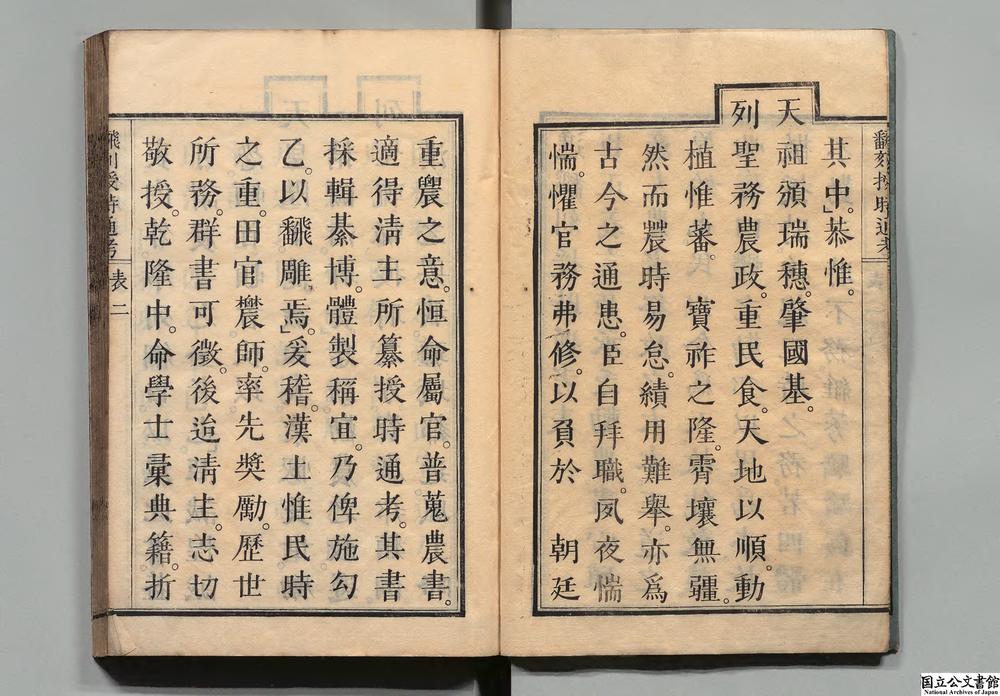 翻刻授時通考
其中。」恭惟。
天祖頒瑞穗。肇國基。
列聖務農政。重民食。天地以順。動
植惟蕃。寶祚之隆。霄壤無疆。
然而農時易怠。績用難舉。亦爲
古今之通患。臣自拜職。夙夜惴
惴。懼官務弗修。以負於 朝廷
重農之意。恒命屬官。普蒐農書。
適得淸主所纂授時通考。其書
採輯綦博。體製稱宜。乃俾施勾
乙。以飜雕焉。」爰稽。漢土惟民時
之重。田官農師。率先奬勵。歷世
所務。群書可徵。後迨淸主。志切
敬授。乾隆中。命學士彙典籍。折
飜刻授時通考 表 二
国立公文書館
National Archives of Japan